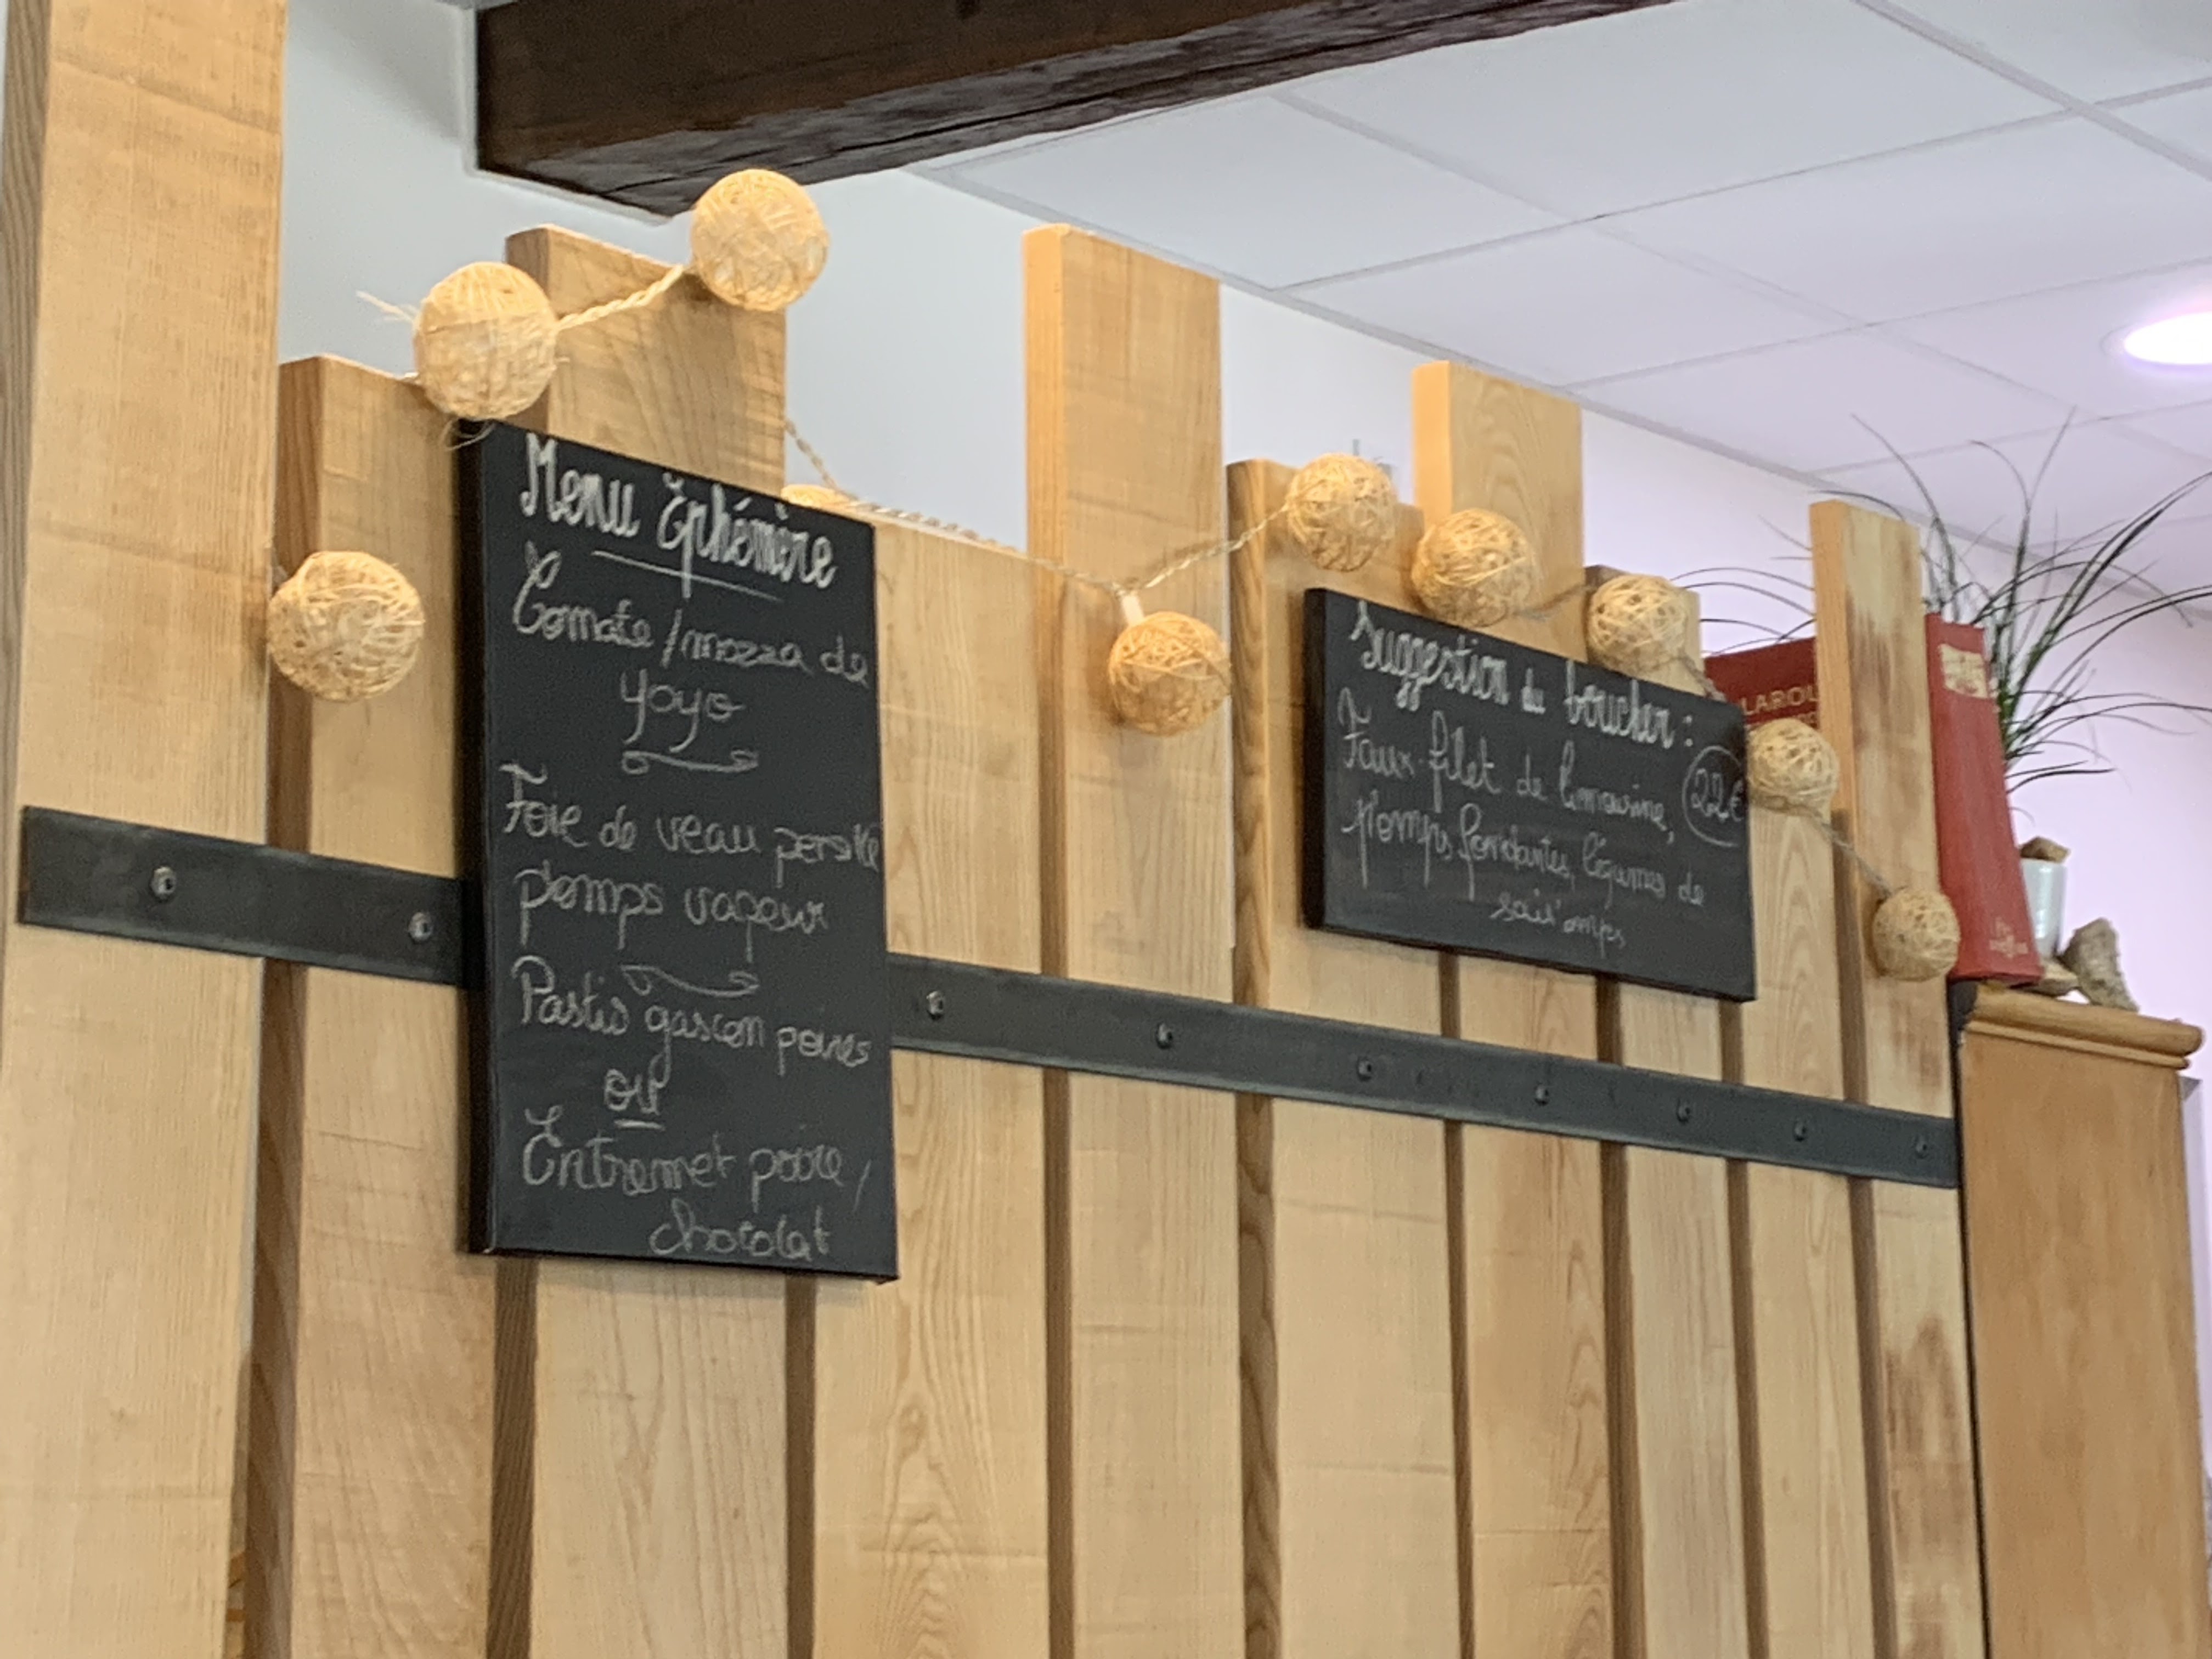 Menu Éphémère
Tomate / mozza de
yoyo
Foie de veau persillé
pomps vapeur
Pastis gascon poires
ou
Entremet poire /
chocolat
Suggestion du boucher :
Faux-filet de limousine, 22€
Pomps fondantes, légumes de
LAROU